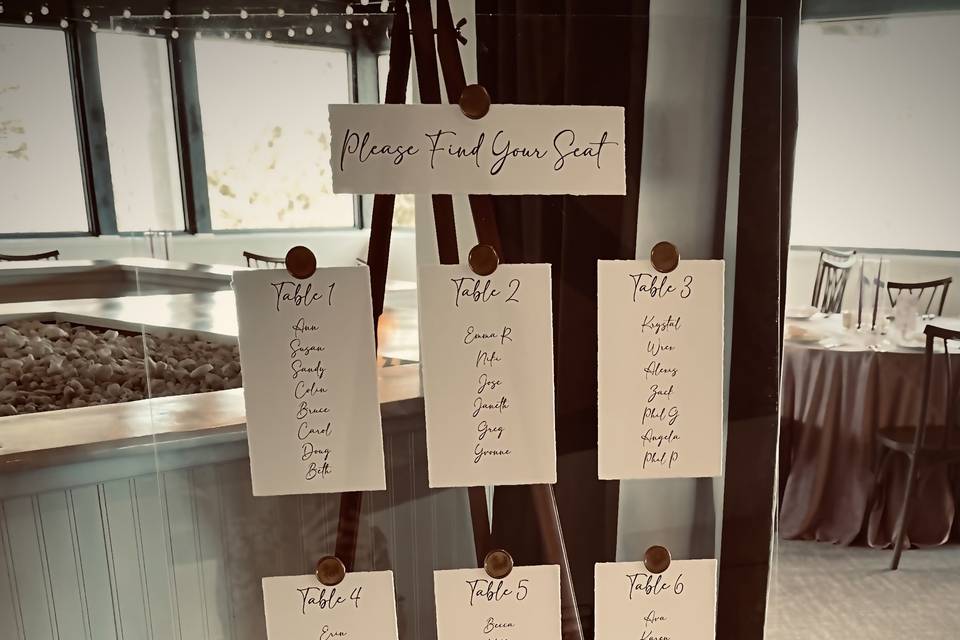 Please Find Your Seat
Table 1
Ann
Susan
Sandy
Colin
Bruce
Carol
Doug
Beth
Table 2
Emma R
Niki
Jose
Janeth
Greg
Yvonne
Table 3
Krystal
Wren
Alexis
Zack
Phil G
Angela
Phil P
Table 4
Erin
Table 5
Becca
Table 6
Ava
Karen